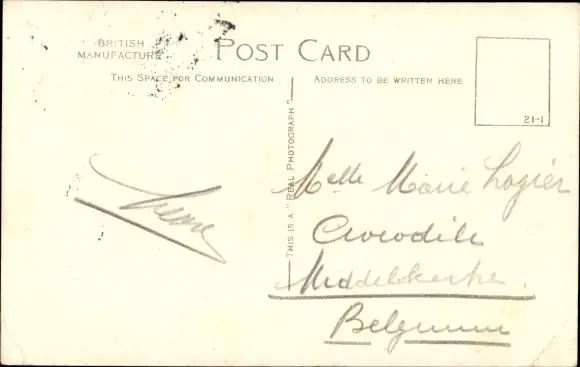 BRITISH
MANUFACTURE
POST CARD
THIS SPACE FOR COMMUNICATION
ADDRESS TO BE WRITTEN HERE
21-1
THIS IS A "REAL PHOTOGRAPH"
Melle Marie Logier
Crocodile
Middelkerke.
Belgium